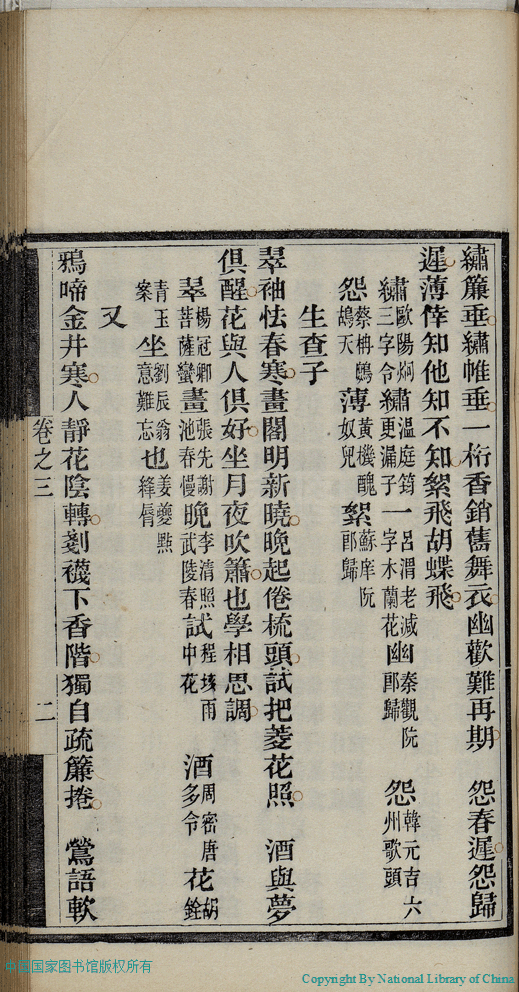 繡簾垂繡帷垂一桁香銷舊舞衣幽歡難再期 怨春遲怨歸
遲薄倖知他知不知絮飛胡蝶飛
繡歐陽炯三字令繡溫庭筠更漏子一呂渭老減字木蘭花幽秦觀阮郎歸 怨韓元吉六州歌頭
怨蔡柟鷓鴣天薄黃機醜奴兒絮蘇庠阮郎歸
生查子
翠袖怯春寒畫閣明新曉晚起倦梳頭試把菱花照 酒與夢
俱醒花與人俱好坐月夜吹簫也學相思調
翠楊冠卿菩薩蠻畫張先謝池春慢晚李清照武陵春試程垓雨中花 酒周密唐多令花胡銓
青玉案坐劉辰翁意難忘也姜夔點絳脣
又
鴉啼金井寒人靜花陰轉剗襪下香階獨自疏簾捲 鶯語軟
卷之三
二
中国国家图书馆版权所有
Copyright By National Library of China